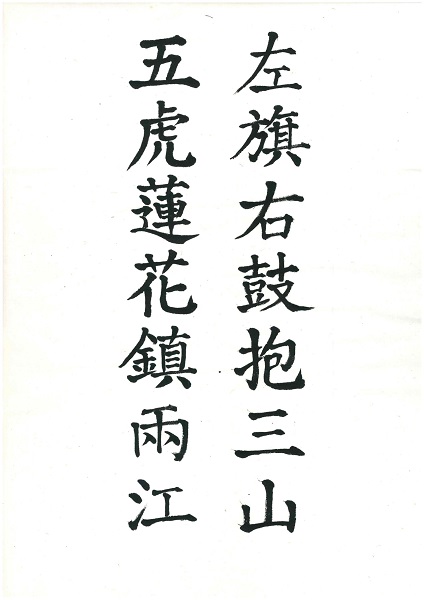 左旗右鼓抱三山
五虎蓮花鎮兩江